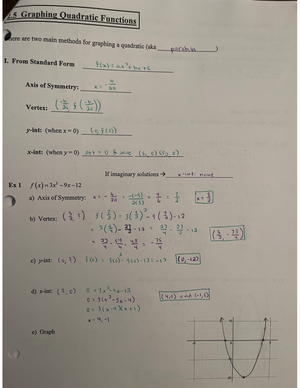 .5 Graphing Quadratic Functions
There are two main methods for graphing a quadratic (aka parabola )
I. From Standard Form f(x) = ax² + bx + c
Axis of Symmetry: x = -b/2a
Vertex: (-b/2a, f(-b/2a))
y-int: (when x = 0) (0, f(0))
x-int: (when y = 0) set = 0 & solve
If imaginary solutions → x-int: none
Ex 1 f(x) = 3x² - 9x - 12
a) Axis of Symmetry: x = -b/2a = -(-9)/2(3) = 9/6 = 3/2 x = 3/2
b) Vertex: (3/2, ?) f(3/2) = 3(3/2)² - 9(3/2) - 12
= 3(9/4) - 27/2 - 12 = 27/4 - 27/2 - 12
= 27/4 - 54/4 - 48/4 = -75/4 (3/2, -75/4)
c) y-int: (0, ?) f(0) = 3(0)² - 9(0) - 12 = -12 (0, -12)
d) x-int: (?, 0) 0 = 3x² - 9x - 12 (4, 0) and (-1, 0)
0 = 3(x² - 3x - 4)
0 = 3(x - 4)(x + 1)
x = 4, -1
e) Graph